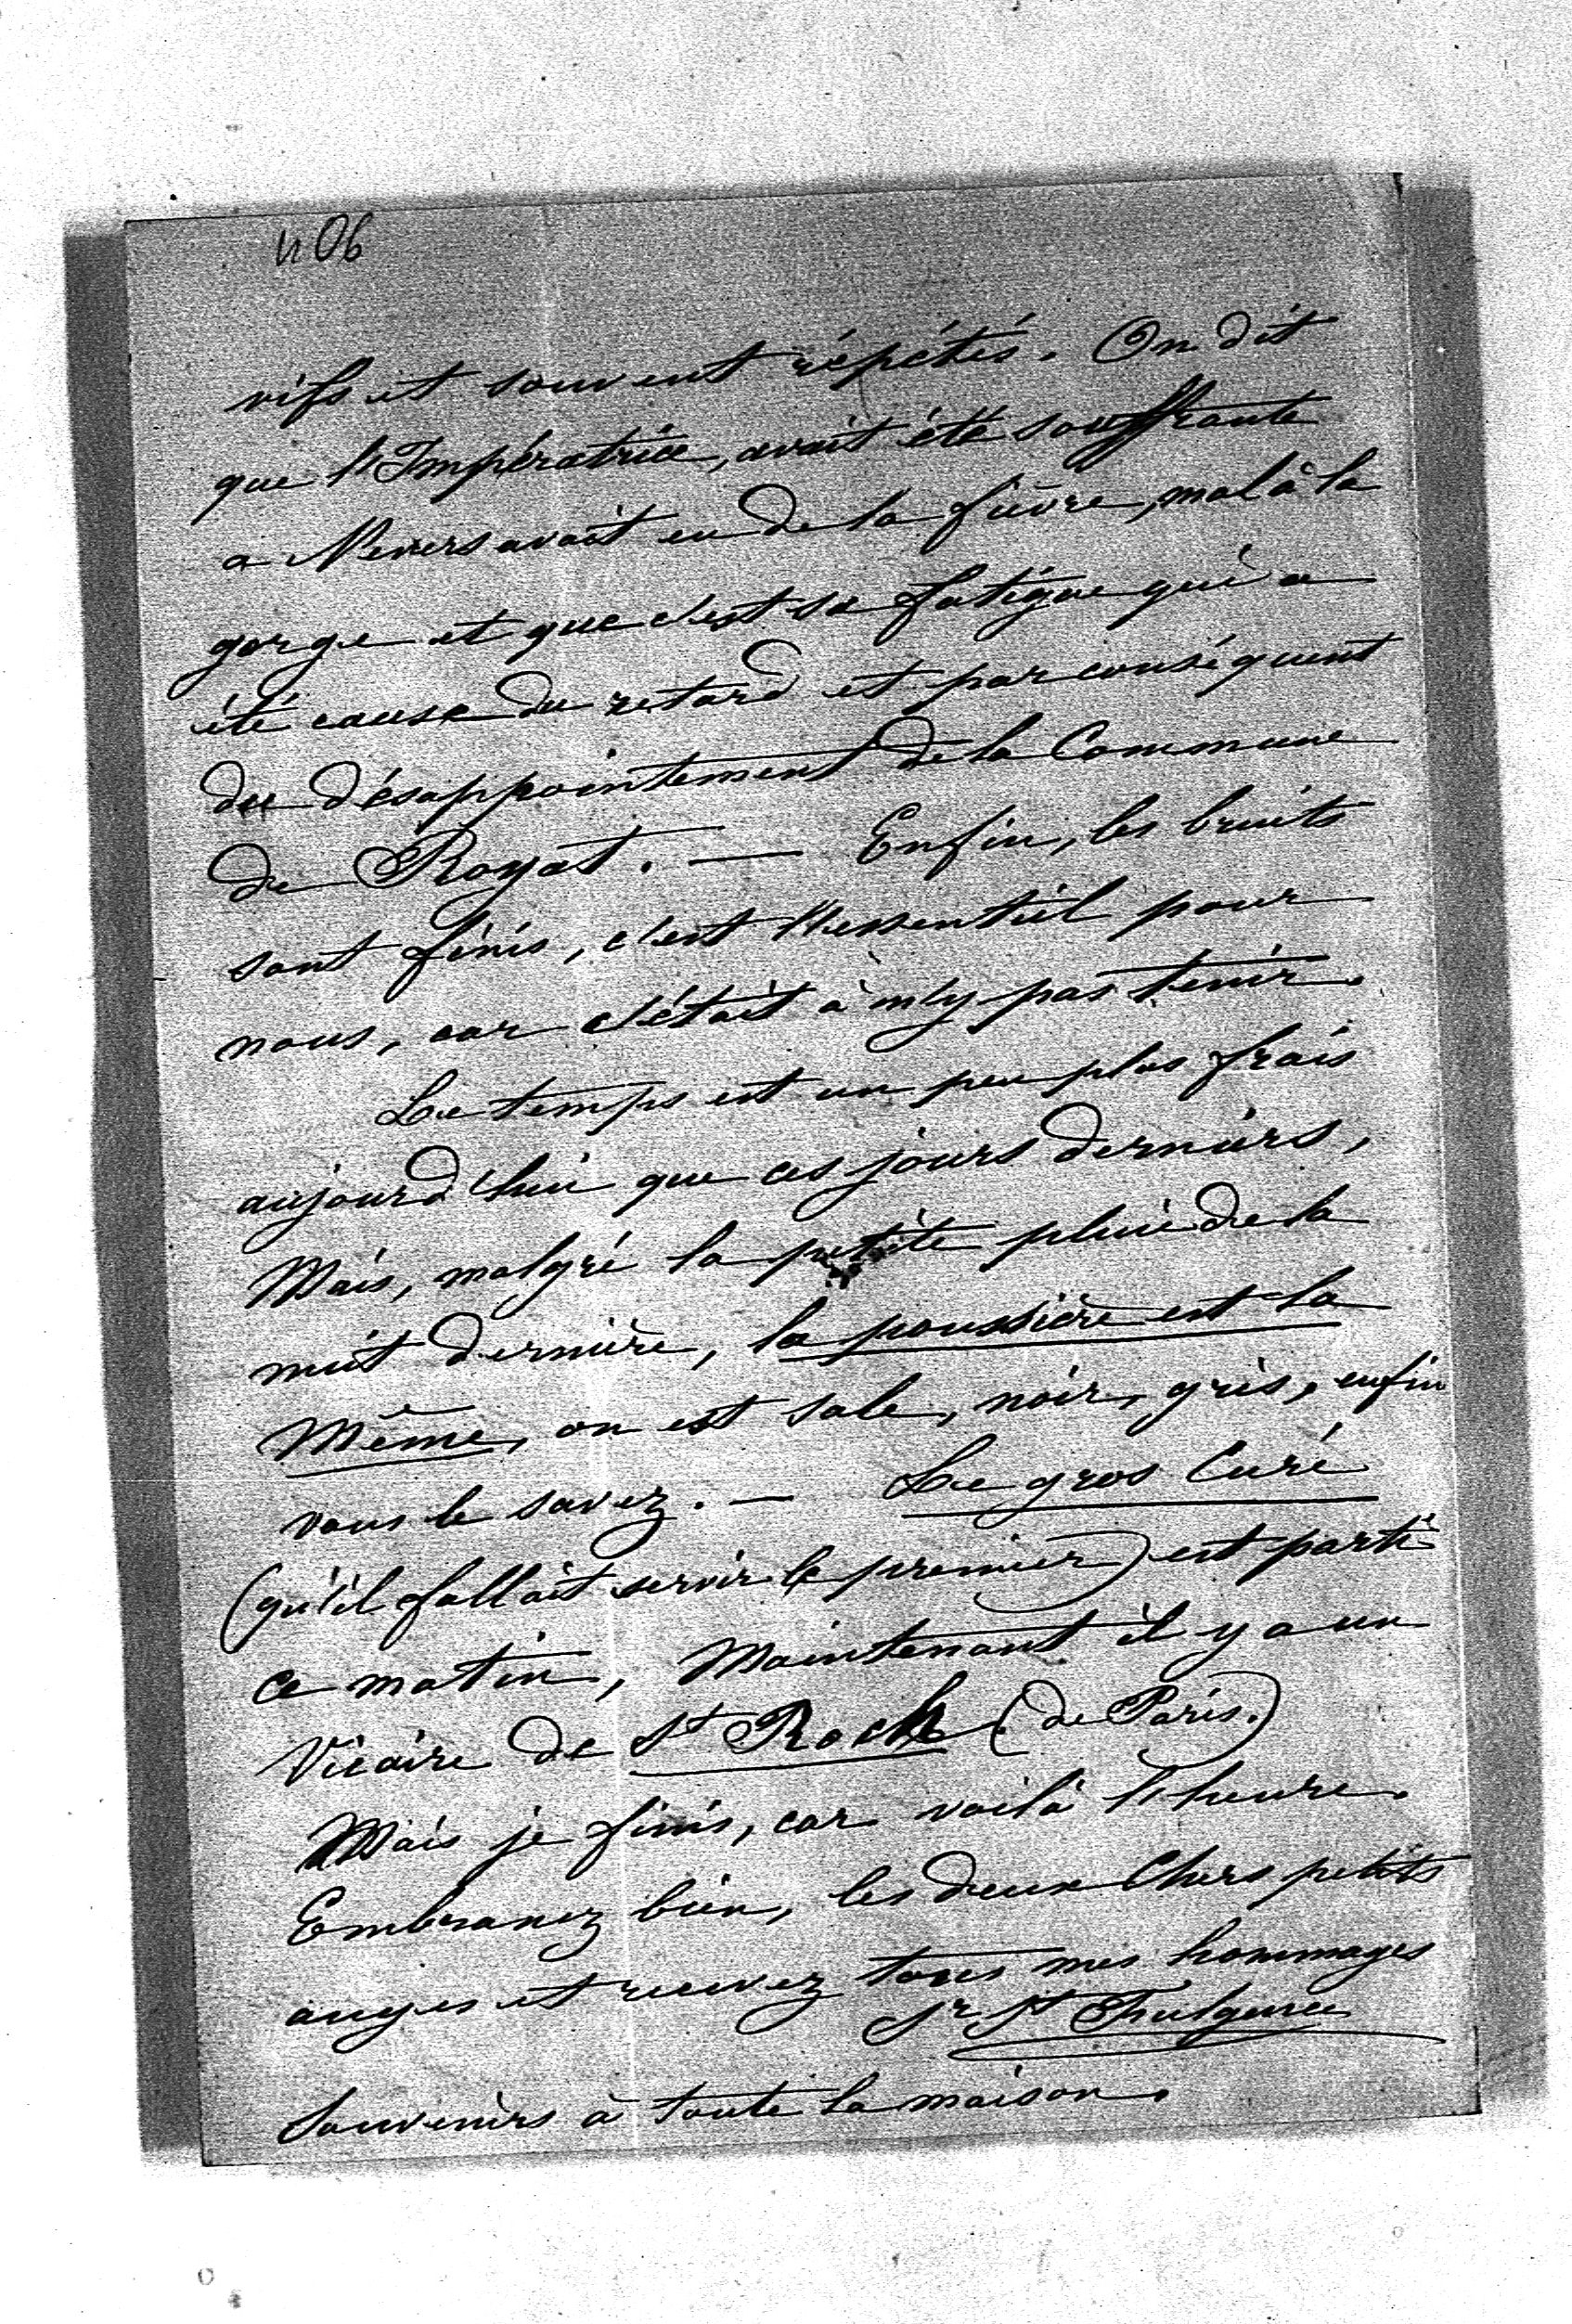 406
vifs et souvent répétés. On dit
que l'Impératrice, avait été souffrante
a Nevers avait eu de la fièvre, mal à la
gorge et que c'est sa fatigue qui a
été cause du retard et par conséquent
du désappointement de la Commune
de Royat. — Enfin, les bruits
sont finis, c'est l'essentiel pour
nous, car c'était à n'y pas tenir.
Le temps est un peu plus frais
aujourd'hui que ces jours derniers,
Mais, malgré la petite pluie de la
nuit dernière, la poussière est la
Même, on est sale, noir, gris, enfin
vous le savez. — Le gros Curé
(qu'il fallait servir le premier) est parti
ce matin, Maintenant il y a un
Vicaire de St Roch (de Paris.)
Mais je finis, car voilà l'heure.
Embrassez bien, les deux Chers petits
anges et recevez tous mes hommages
Sr St Fulgence
Souvenirs à toute la maison.